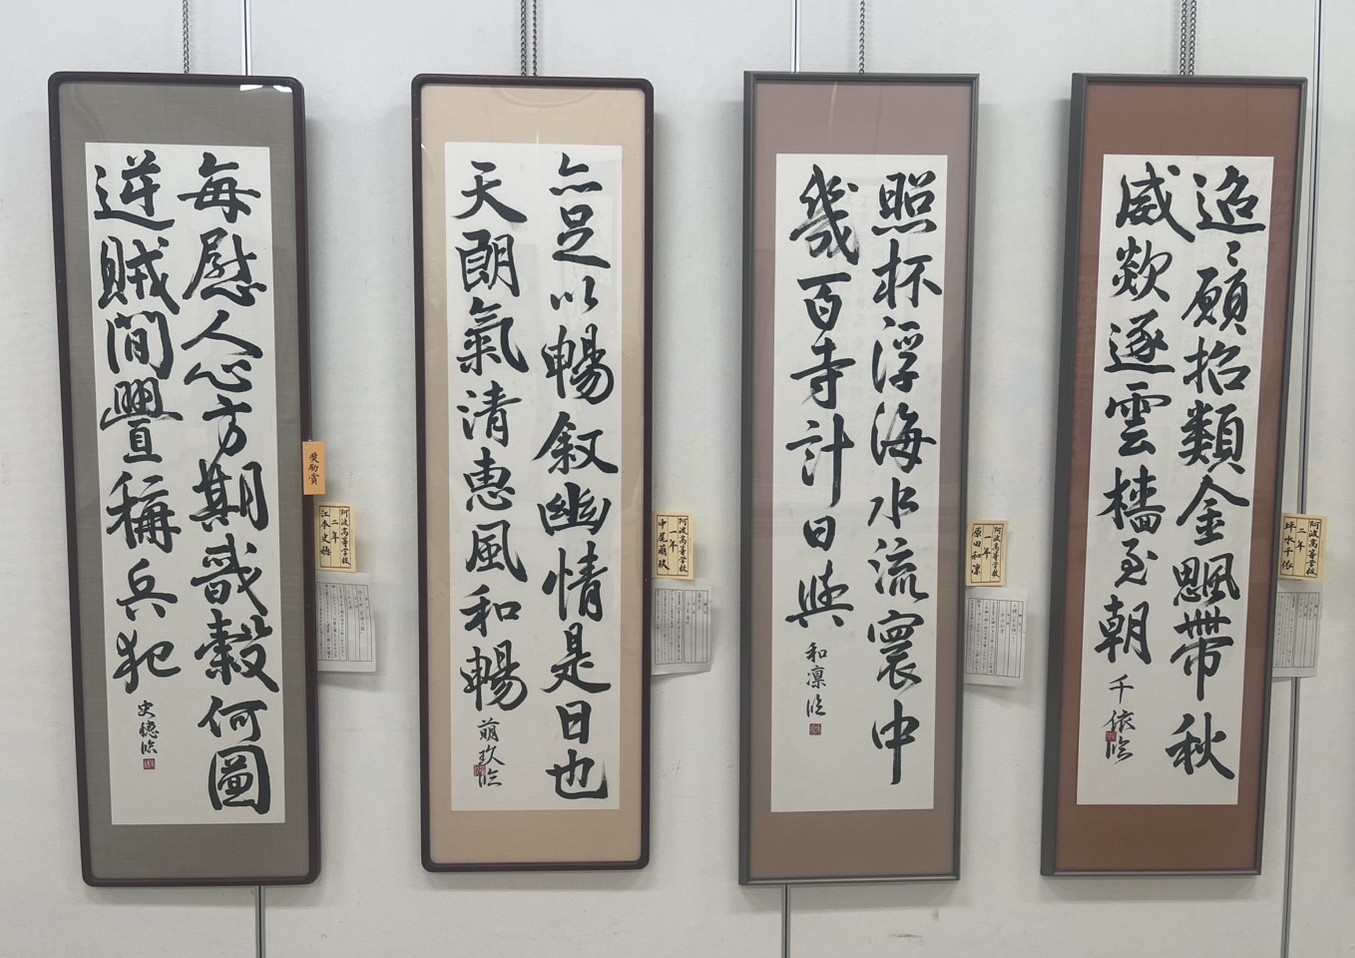 毎慰人心方期戩穀何圖
逆賊間舋稱兵犯
史穂臨
奨励賞
阿波高等学校
二年
江本史穂
亦足以暢叙幽情是日也
天朗氣清恵風和暢
萌玖臨
阿波高等学校
一年
中尾萌玖
照杯浮海水流寰中
幾百寺計日與
和凛臨
阿波高等学校
一年
原田和凛
迢〻顧招類金飈帶秋
威欻遂雲檣至朝
千依臨
阿波高等学校
二年
坪本千依